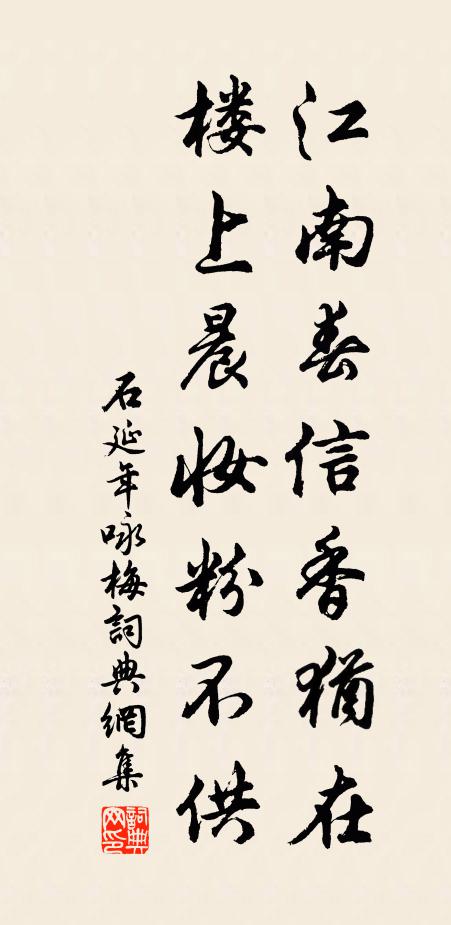 江南春信香猶在
楼上晨妆粉不供
石延年咏梅詞典網集
詞典网印